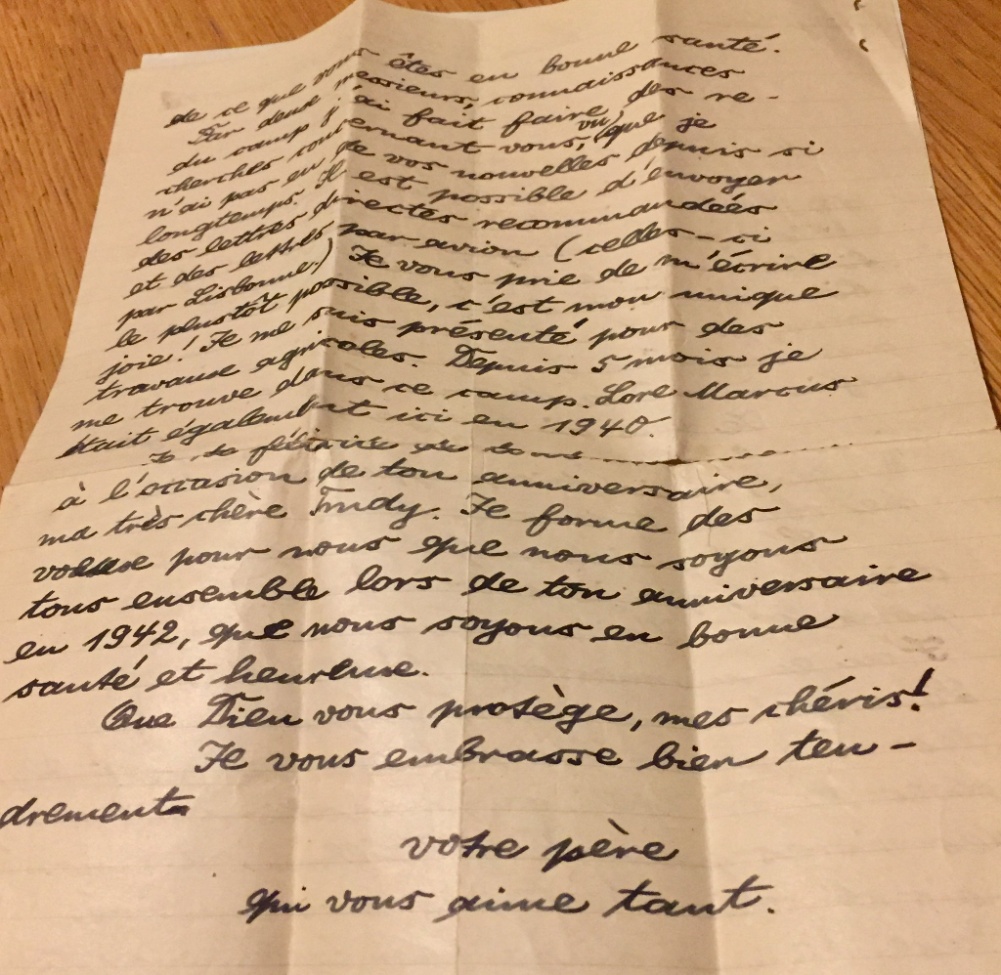 de ce que vous êtes en bonne santé.
Par deux messieurs, connaissances
du camp j'ai fait faire des re-
cherches concernant vous, vu que je
n'ai pas eu de vos nouvelles depuis si
longtemps. Il est possible d'envoyer
des lettres directes recommandées
et des lettres par avion (celles-ci
par Lisbonne.) Je vous prie de m'écrire
le plustôt possible, c'est mon unique
joie! Je me suis présenté pour des
travaux agricoles. Depuis 5 mois je
me trouve dans ce camp. Lore Marcus
était également ici en 1940.
Je te félicite de
à l'occasion de ton anniversaire,
ma très chère Trudy. Je forme des
voeux pour nous que nous soyons
tous ensemble lors de ton anniversaire
en 1942, que nous soyons en bonne
santé et heureuse.
Que Dieu vous protège, mes chéris!
Je vous embrasse bien ten-
drement
votre père
qui vous aime tant.